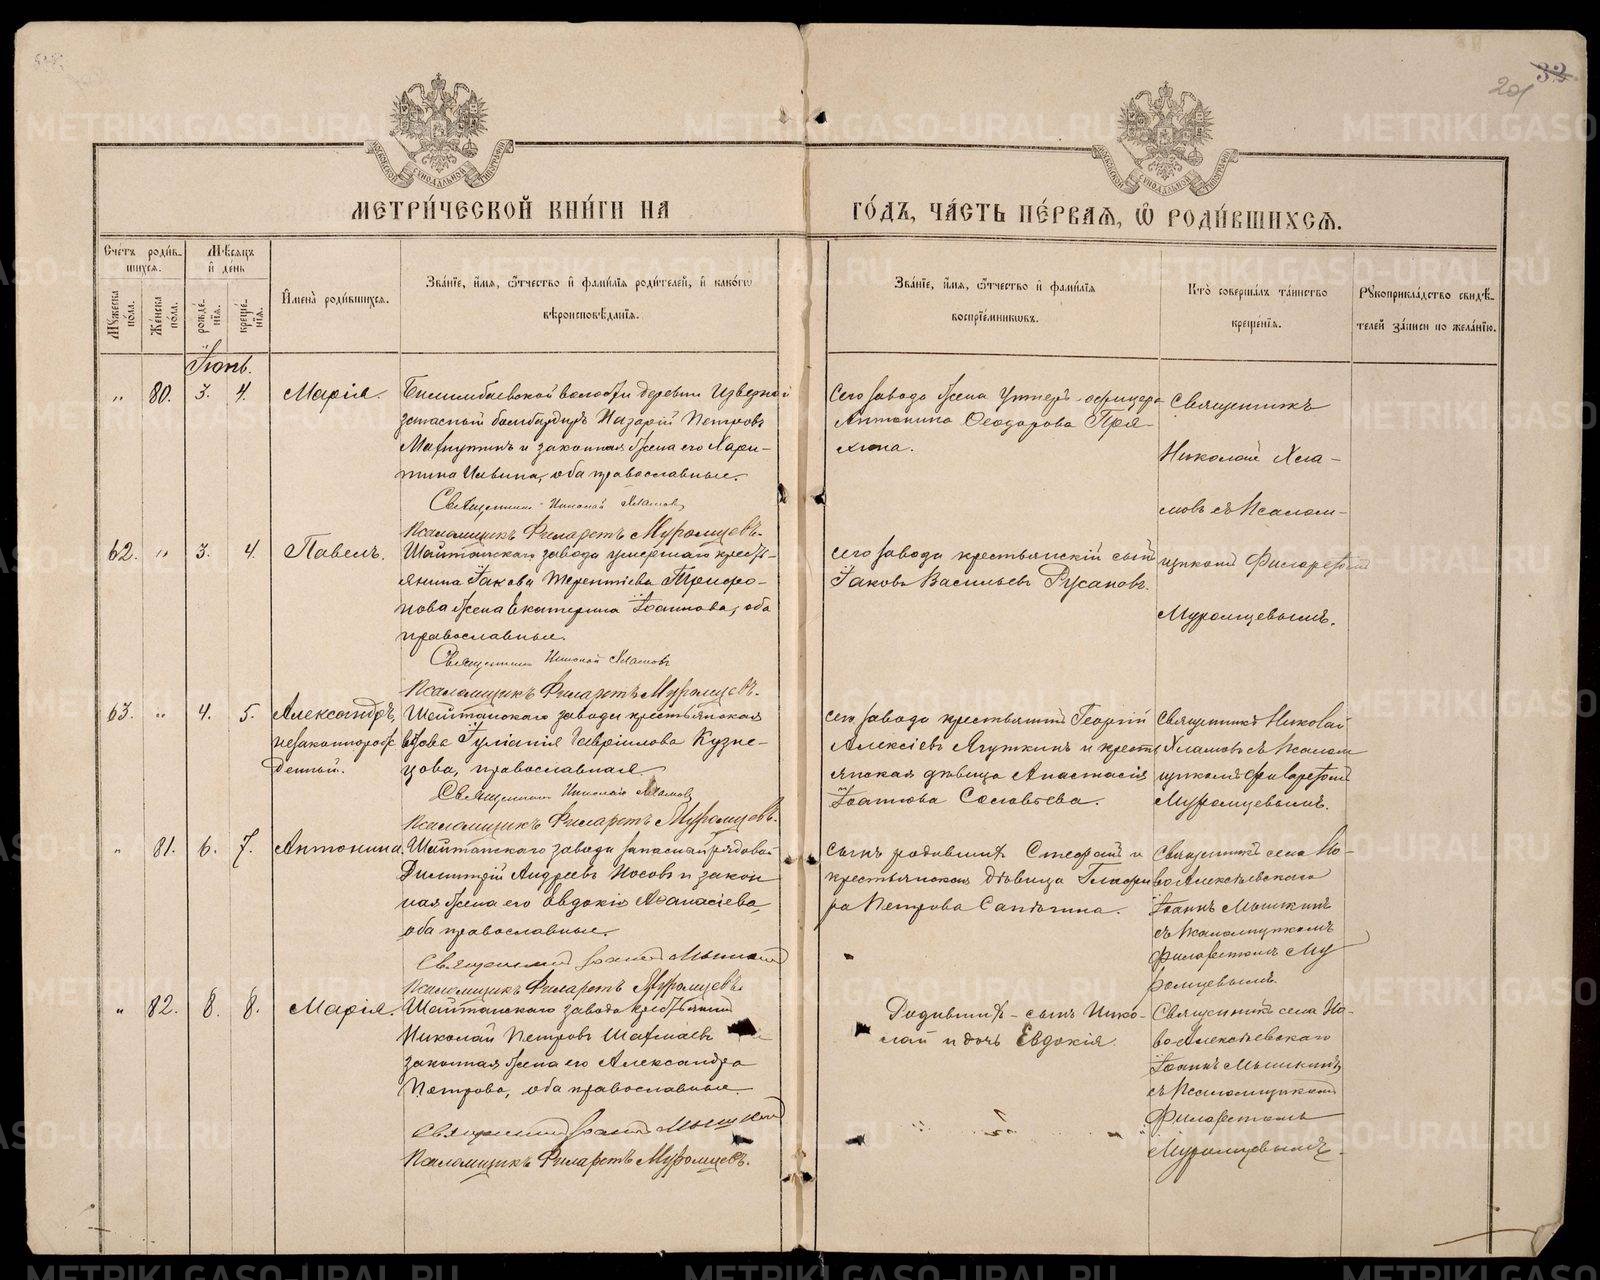 32
20
МЕТРИ́ЧЕСКОЙ КНИ́ГИ НА ГО́ДЪ, ЧА́СТЬ ПЕ́РВАѦ, Ѽ РОДИ́ВШИХСѦ.
Сче́тъ роди́в-
шихсѧ.
Мѣ́сѧцъ
и҆ де́нь
Му́жеска по́ла.
Же́нска по́ла.
рожде́-
нїѧ.
креще́-
нїѧ.
И҆мена̀ роди́вшихсѧ.
Зва́нїе, и҆́мѧ, ѻ҆́тчество и҆ фами́лїѧ роди́телей, и҆ како́гѡ
вѣроисповѣ́данїѧ.
Зва́нїе, и҆́мѧ, ѻ҆́тчество и҆ фами́лїѧ
воспрїе́мникѡвъ.
Кто̀ соверша́лъ та́инство
креще́нїѧ.
Рꙋкоприкла́дство свидѣ́-
телей за́писи по жела́нїю.
Іюнь.
" 80. 3. 4. Марія.
Билимбаевской волости деревни Извезной
запасный бомбардиръ Назарій Петровъ
Махнутинъ и законная жена его Хари-
тина Ильина, оба православные.
Священникъ Николай Хламовъ
Псаломщикъ Филаретъ Муромцевъ.
Сего завода жена унтеръ-офицера
Антонина Ѳеодорова Пря-
хина.
Священникъ
Николай Хла-
мовъ съ псалом-
щикомъ Филаретомъ
Муромцевымъ.
62. " 3. 4. Павелъ.
Шайтанскаго завода умершаго кресть-
янина Іакова Терентіева Трифо-
нова жена Екатерина Іоаннова, оба
православные.
Священникъ Николай Хламовъ
Псаломщикъ Филаретъ Муромцевъ.
Сего завода крестьянскій сынъ
Іаковъ Васильевъ Русановъ.
63. " 4. 5. Александръ,
незаконнорож-
денный.
Шайтанскаго завода крестьянская
вдова Іуліанія Гавріилова Кузне-
цова, православная.
Священникъ Николай Хламовъ
Псаломщикъ Филаретъ Муромцевъ.
Сего завода крестьянинъ Георгій
Алексіевъ Ягуткинъ и кресть-
янская дѣвица Анастасія
Іоаннова Соловьева.
Священникъ Николай
Хламовъ съ псалом-
щикомъ Филаретомъ
Муромцевымъ.
" 81. 6. 7. Антонина.
Шайтанскаго завода запасный рядовой
Димитрій Андреевъ Носовъ и закон
ная жена его Евдокія Аѳанасіева,
оба православные.
Священникъ Іоаннъ Мышкинъ
Псаломщикъ Филаретъ Муромцевъ.
сынъ родившихъ Стефанъ и
крестьянская дѣвица Глафи
ра Петрова Сапѣгина.
Священникъ села Но-
во Алексѣевскаго
Іоаннъ Мышкинъ
съ псаломщикомъ
Филаретомъ Му
ромцевымъ.
" 82. 8. 8. Марія.
Шайтанскаго завода крестьянинъ
Николай Петровъ Шахмаевъ и
законная жена его Александра
Петрова, оба православные.
Священникъ Іоаннъ Мышкинъ
Псаломщикъ Филаретъ Муромцевъ.
Родившихъ - сынъ Нико-
лай и дочь Евдокія.
Священникъ села Но-
во Алексѣевскаго
Іоаннъ Мышкинъ
съ псаломщикомъ
Филаретомъ
Муромцевымъ.
METRIKI.GASO-URAL.RU